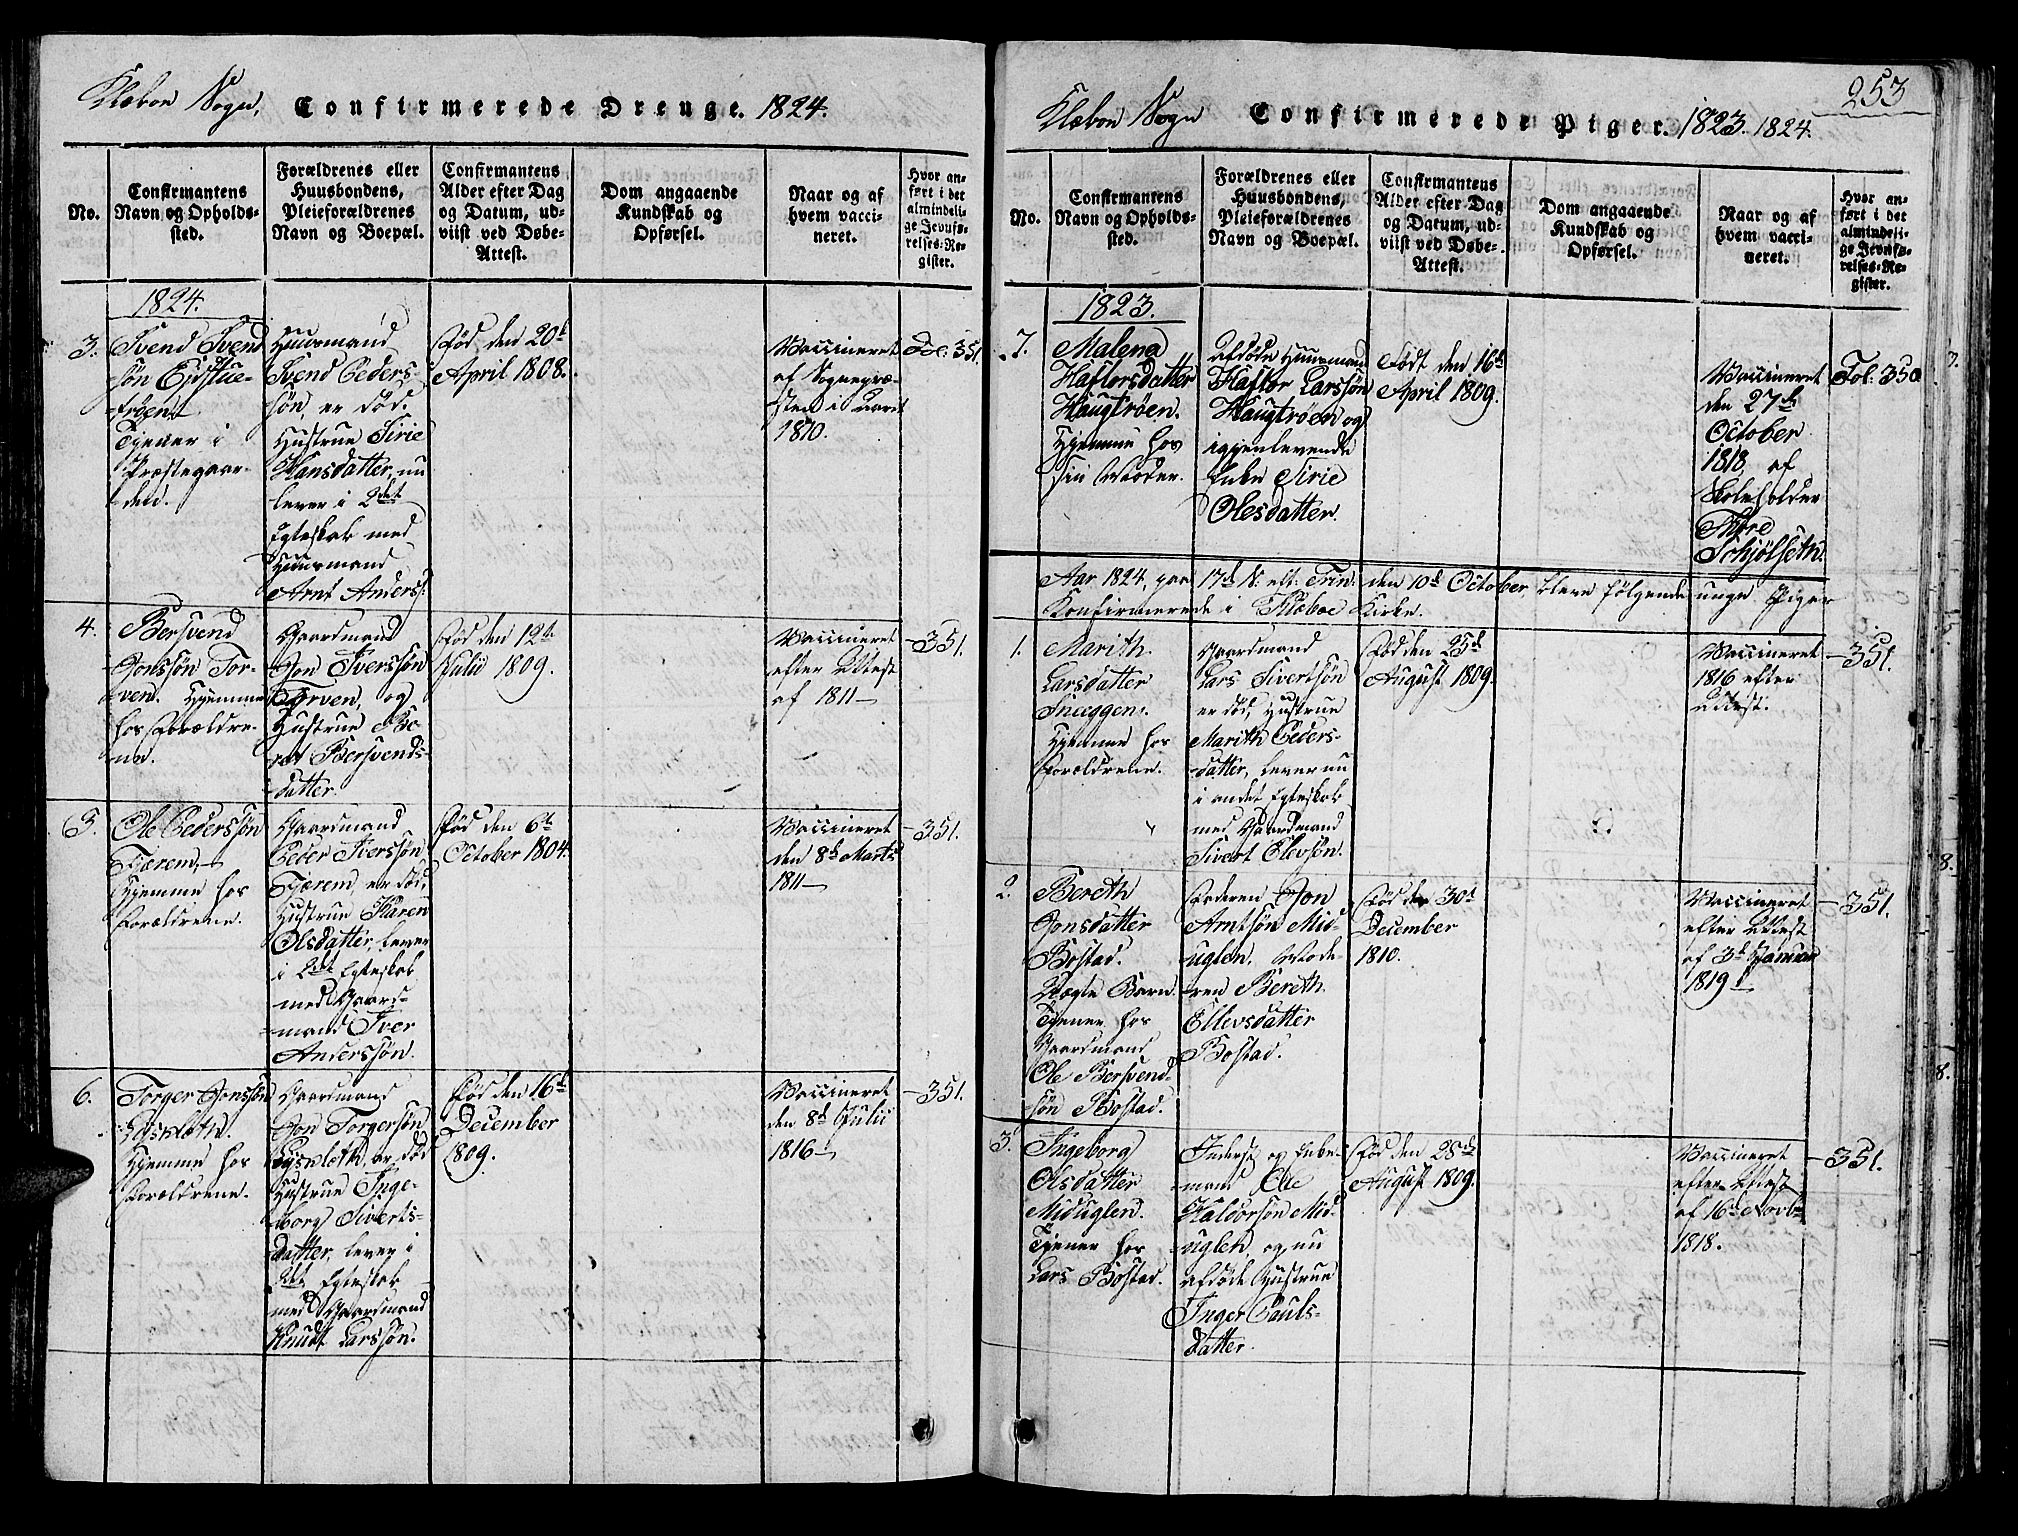 Klæboe Sogn,
Confirmerede Drenge. 1824.
No.
Confirmantens
Navn og Opholds-
sted.
Forældrenes eller
Huusbondens,
Pleieforældrenes
Navn og Boepæl.
Confirmantens
Alder efter Dag
og Datum, ud-
viist ved Døbe-
Attest.
Dom angaaende
Kundskab og
Opførsel.
Naar og af
hvem vacci-
neret.
Hvor an-
ført i det
almindeli-
ge Jevnfø-
relses-Re-
gister.
1824.
3.
Svend Svend
søn
Tjener i
Præstegaar-
den.
Huusmand
Svend Peders-
søn, er død.
Hustrue Sirie
Hansdatter, nu
lever i 2det
Egteskab med
Huusmand
Arnt Anders:
Fød den 20de
April 1808.
Vaccineret
af Sognepræ-
sten i
1810.
Fol: 351.
4.
Bersvend
Jonssøn Tor-
ven. Hjemme
hos Forældre-
ne.
Gaardmand
Jon Iverssøn
Torven, og
Hustrue Be-
ret Bersvends-
datter.
Fød den 12te
Julii 1809.
Vaccineret
efter Attest
af 1811 –
– 351.
5.
Ole Pederssøn
Tjærem, –
Hjemme hos
Forældrene.
Gaardmand
Peder Iverssøn
Tjærem, er død,
Hustrue Karen
Olsdatter, lever
i 2det Egteskab
med Gaard-
mand Iver
Anderssøn.
Fød den 6te
October 1804.
Vaccineret
den 8de Marts
1811 –
– 351.
6.
Torger Jonssøn
Lysklæth.
Hjemme hos
Forældrene.
Gaardmand
Jon Torgersøn
Lysklæth, er død
Hustrue Inge-
borg Siverts-
datter, lever i
2det Egteskab
med Gaardmand
Knudt Larssøn.
Fød den 16de
December
1809.
Vaccineret
den 8de Julii
1816 –
– 351.
253
Klæboe Sogn
Confirmerede Piger. 1823. 1824.
No.
Confirmantens
Navn og Opholds-
sted.
Forældrenes eller
Huusbondens,
Pleieforældrenes
Navn og Boepæl.
Confirmantens
Alder efter Dag
og Datum, ud-
viist ved Døbe-
Attest.
Dom angaaende
Kundskab og
Opførsel.
Naar og af
hvem vacci-
neret.
Hvor an-
ført i det
almindeli-
ge Jevnfø-
relses-Re-
gister.
1823.
7.
Malena
Haftorsdatter
Haugtrøen.
Hjemme hos
sin Moder.
Afdøde Huusmand
Haftor Larssøn
Haugtrøen og
igjenlevende
Enke Sirie
Olesdatter.
Født den 16de
April 1809.
Vaccineret
den 27de
October
1818, af
Skoleholder
Thore
Schjølseth.
Fol: 350
Aar 1824, paa 17de S. eft: Trin: den 10de October bleve følgende unge Piger
Konfirmerede i Klæboe Kirke.
1.
Marith
Larsdatter
Snæggen.
Hjemme hos
Forældrene.
Gaardmand
Lars Sivertsøn
er død, Hustrue
Marith Peders-
datter, lever nu
i andet Egteskab
med Gaardmand
Sivert Elevsøn.
Fød den 25de
August 1809.
Vaccineret
1816 efter
Attest.
– 351.
2.
Bereth
Jonsdatter
Bostad.
Uægte Barn.
Tjener hos
Gaardmand
Ole Bersvend-
søn Bostad.
Faderen Jon
Arntsøn Mid-
uglen. Mode-
ren Bereth
Ellevsdatter
Bostad.
Fød den 30te
December
1810.
Vaccineret
efter Attest
af 3de Januar
1819
– 351.
3.
Ingeborg
Olsdatter
Miduglen.
Tjener hos
Lars Bostad.
Inderst og Enke-
mand Ole
Haldorsøn Mid-
uglen, og nu
afdøde Hustrue
Inger Pauls-
datter.
Fød den 28de
August 1809.
Vaccineret
efter Attest
af 16de Novbr
1818.
– 351.
7.
8.
8.